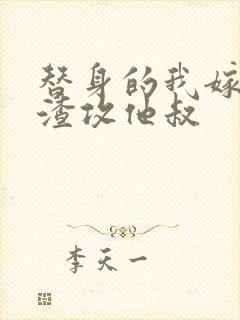 替身的我嫁
渣攻他叔
李天一